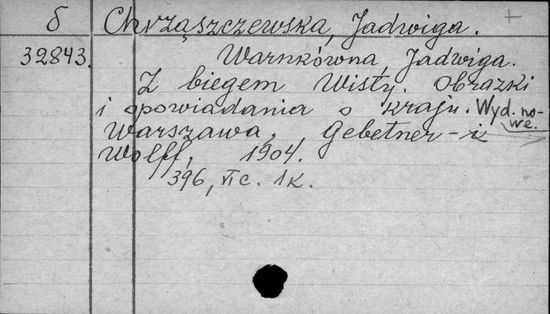 б Chrząszczewska, Jadwiga. +
32843. Warnkówna, Jadwiga.
Z biegem Wisły. Obrazki
i opowiadania o kraju. Wyd. no-
we.
Warszawa, Gebetner-i
Wolff, 1904.
396, VI c. 1 K.